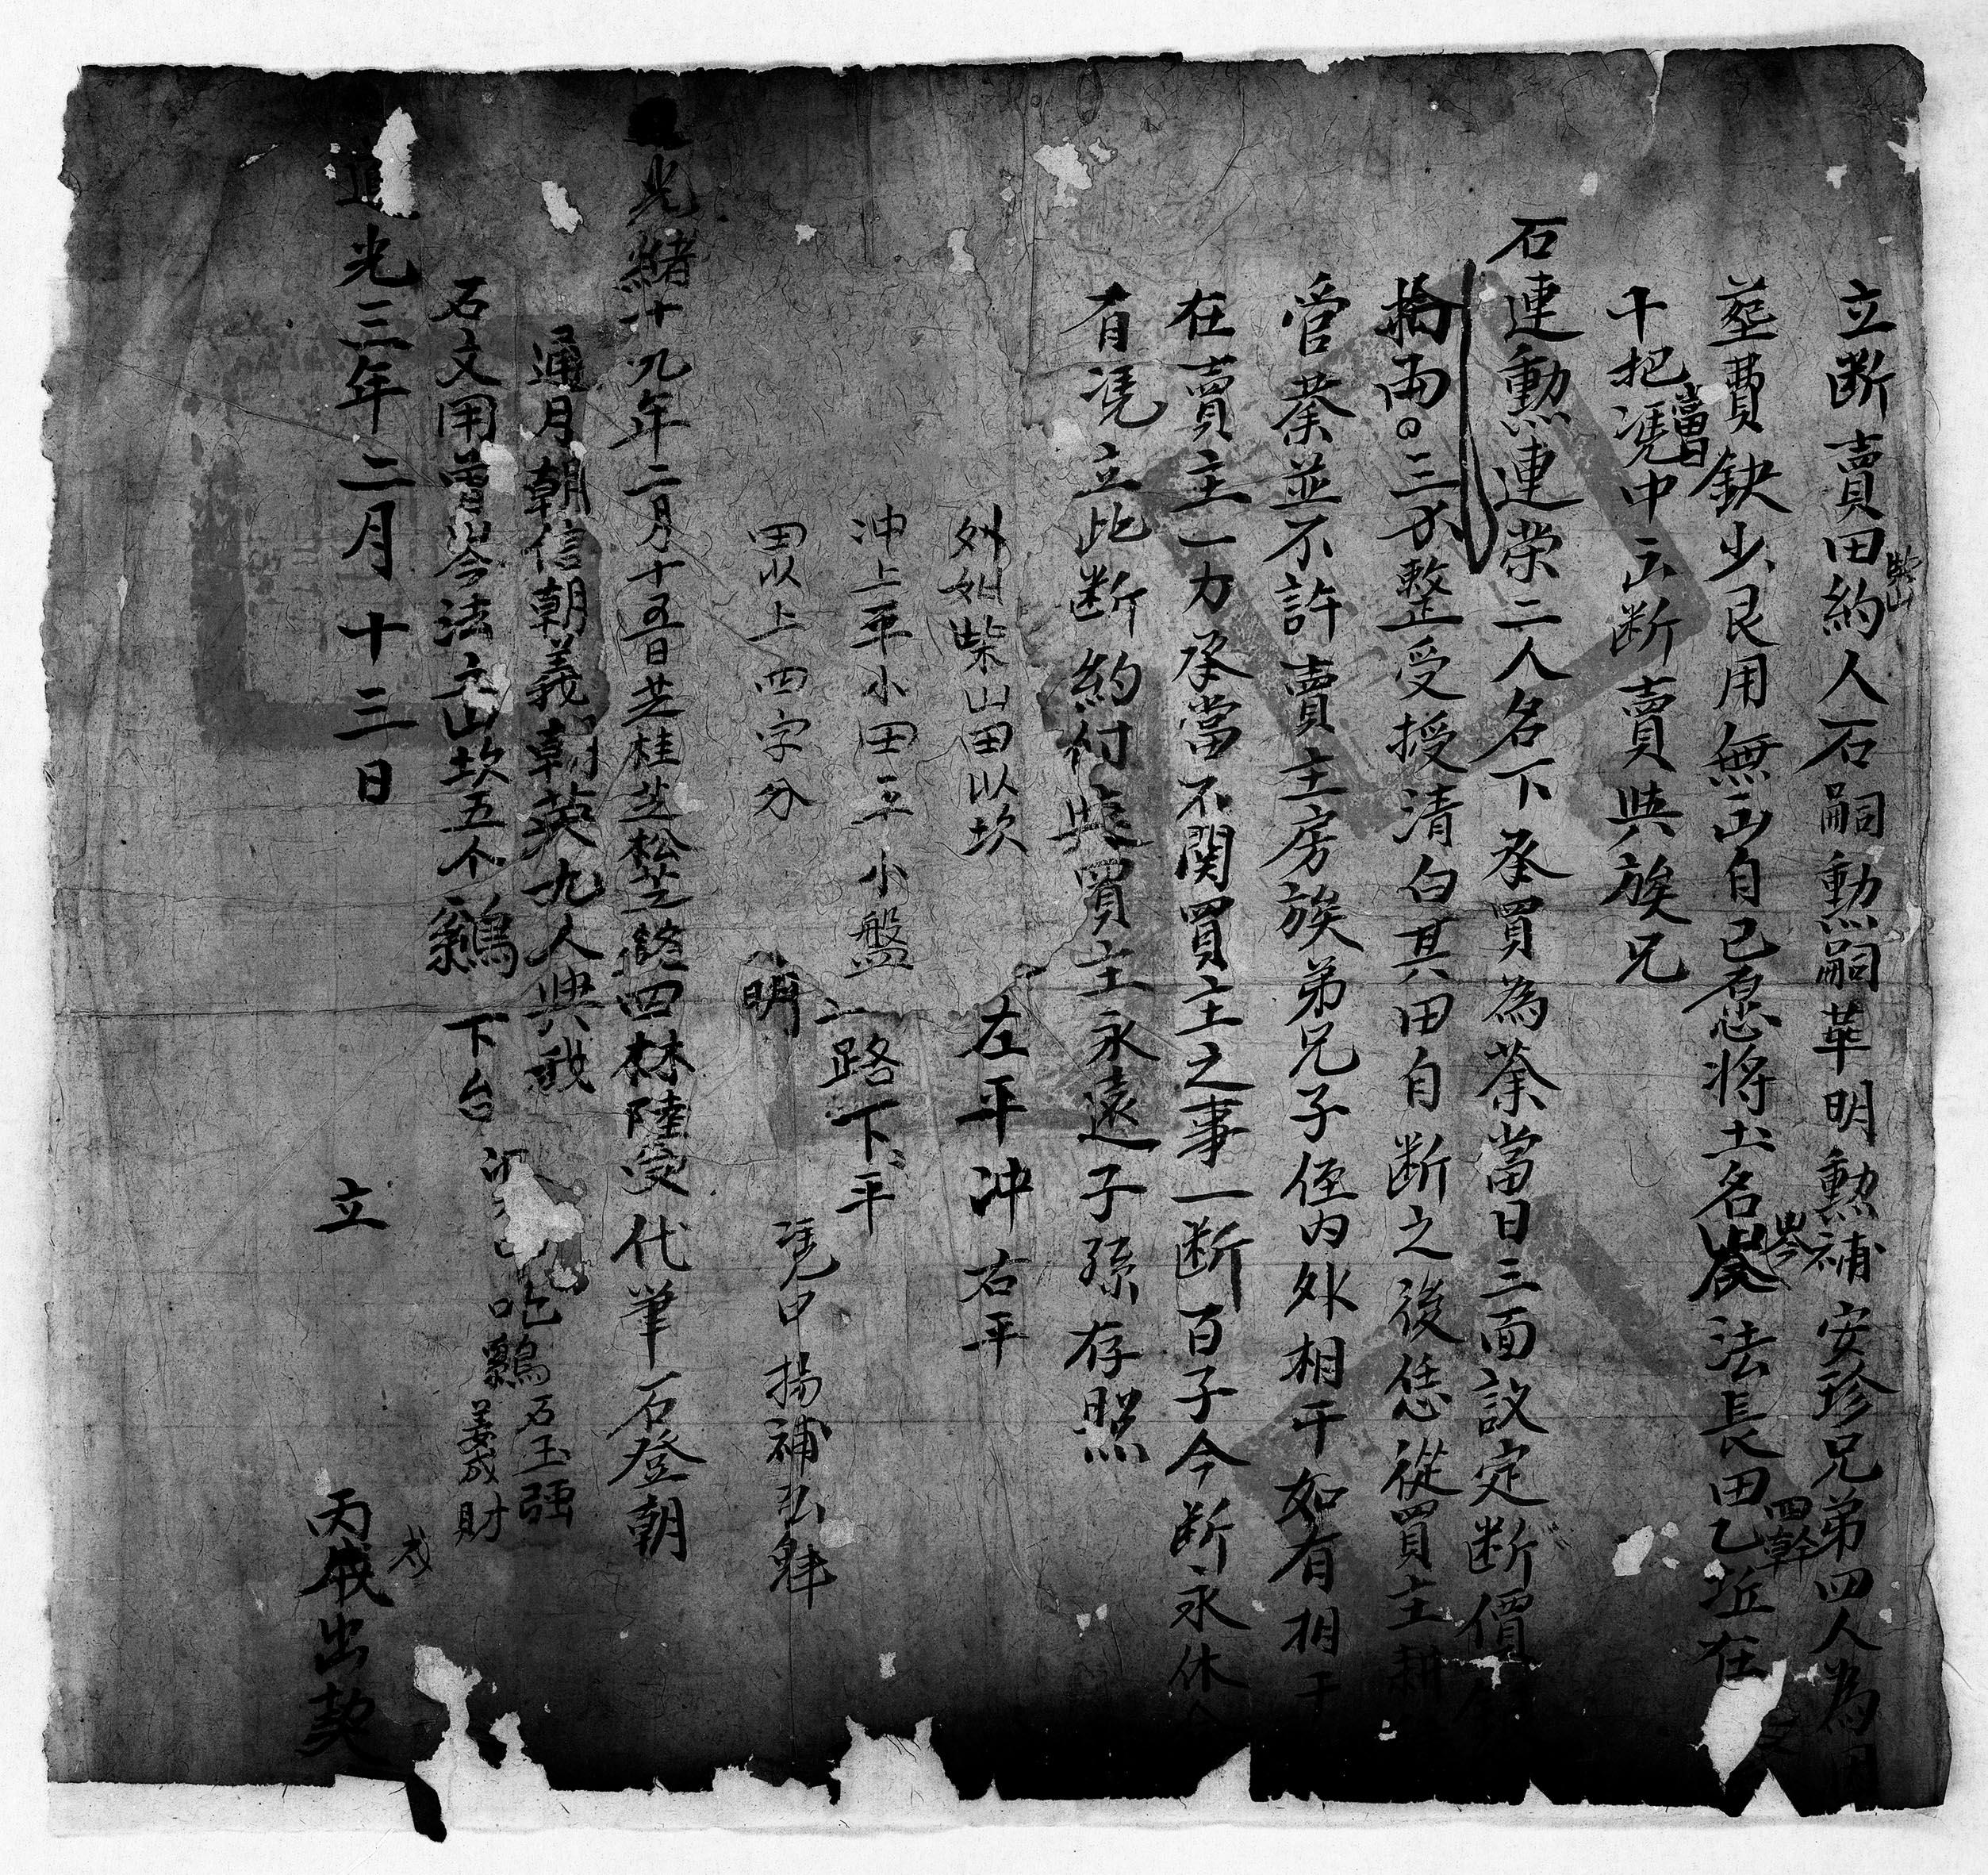 立断賣田約人石嗣勲嗣華明勲補安珍兄弟四人為因
柴山
塟費缺少艮用無出自己愿將土名岑法長田乙坵在
岑
四幹
十把憑中云断賣與族兄
當日
石連勲連荣二人名下承買為業當日三面議定断價
拾両〇三分整受授清白其田自断之後恁從買主耕
管業並不許賣主房族弟兄子侄内外相干如有相干
在賣主一力承當不関買主之事一断百子今断永休
有凭立此断約付與買主永遠子孫存照
外如柴山田以坎
左平冲右平
冲上平小田三小盤
路下平
田以上四字分
明
凴中 揚補弘魁
光緒十九年二月十五日芝桂芝松芝 四林陸受 代筆 石登朝
通月朝信朝義朝英九人典我
石文用曽岑今法立山坎五个 下台
吃 石玉强
姜成財
道光三年二月十三日 立
丙戌出契
戍